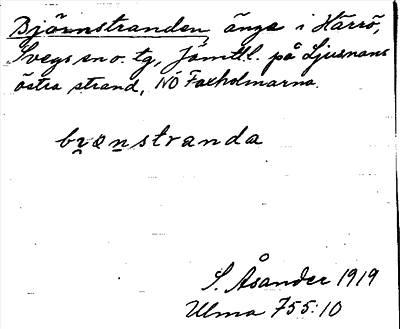 Björnstranden änge i Härrö,
Svegs sno. tg, Jämtl.l. på Ljusnans
östra strand, NÖ Faxholmarna.
bvænstranda
S. Åsander 1919
Ulma 755:10